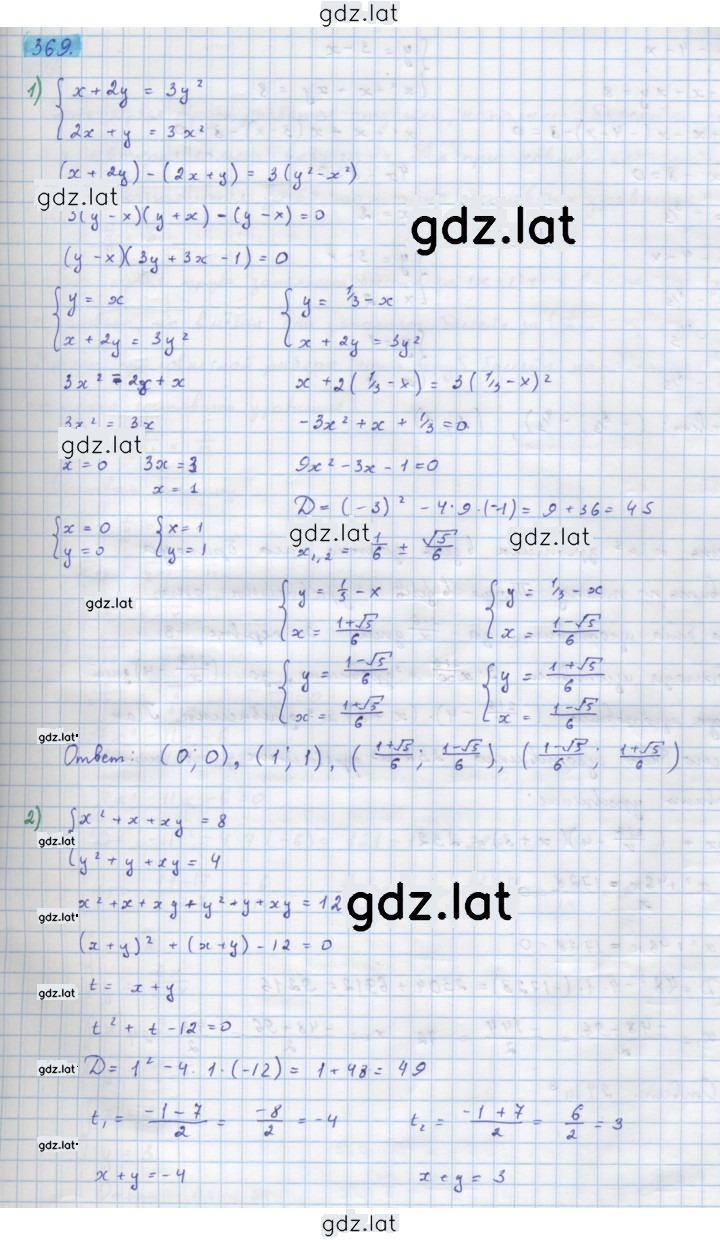 gdz.lat
369.
1) { x + 2y = 3y²
2x + y = 3x²
(x + 2y) - (2x + y) = 3(y² - x²)
gdz.lat
3(y - x)(y + x) - (y - x) = 0
gdz.lat
(y - x)(3y + 3x - 1) = 0
{ y = x { y = 1/3 - x
x + 2y = 3y² x + 2y = 3y²
3x² = 2y + x x + 2(1/3 - x) = 3(1/3 - x)²
3x² = 3x -3x² + x + 1/3 = 0
gdz.lat
x = 0 3x = 3 9x² - 3x - 1 = 0
x = 1
D = (-3)² - 4·9·(-1) = 9 + 36 = 45
{ x = 0 { x = 1
y = 0 y = 1
gdz.lat gdz.lat
x₁,₂ = 1/6 ± √5/6
gdz.lat
{ y = 1/3 - x { y = 1/3 - x
x = (1+√5)/6 x = (1-√5)/6
{ y = (1-√5)/6 { y = (1+√5)/6
x = (1+√5)/6 x = (1-√5)/6
gdz.lat
Ответ: (0; 0), (1; 1), ((1+√5)/6; (1-√5)/6), ((1-√5)/6; (1+√5)/6)
2) { x² + x + xy = 8
gdz.lat
y² + y + xy = 4
x² + x + xy + y² + y + xy = 12
gdz.lat
gdz.lat
(x + y)² + (x + y) - 12 = 0
gdz.lat
t = x + y
t² + t - 12 = 0
gdz.lat
D = 1² - 4·1·(-12) = 1 + 48 = 49
t₁ = (-1-7)/2 = -8/2 = -4 t₂ = (-1+7)/2 = 6/2 = 3
gdz.lat
x + y = -4 x + y = 3
gdz.lat